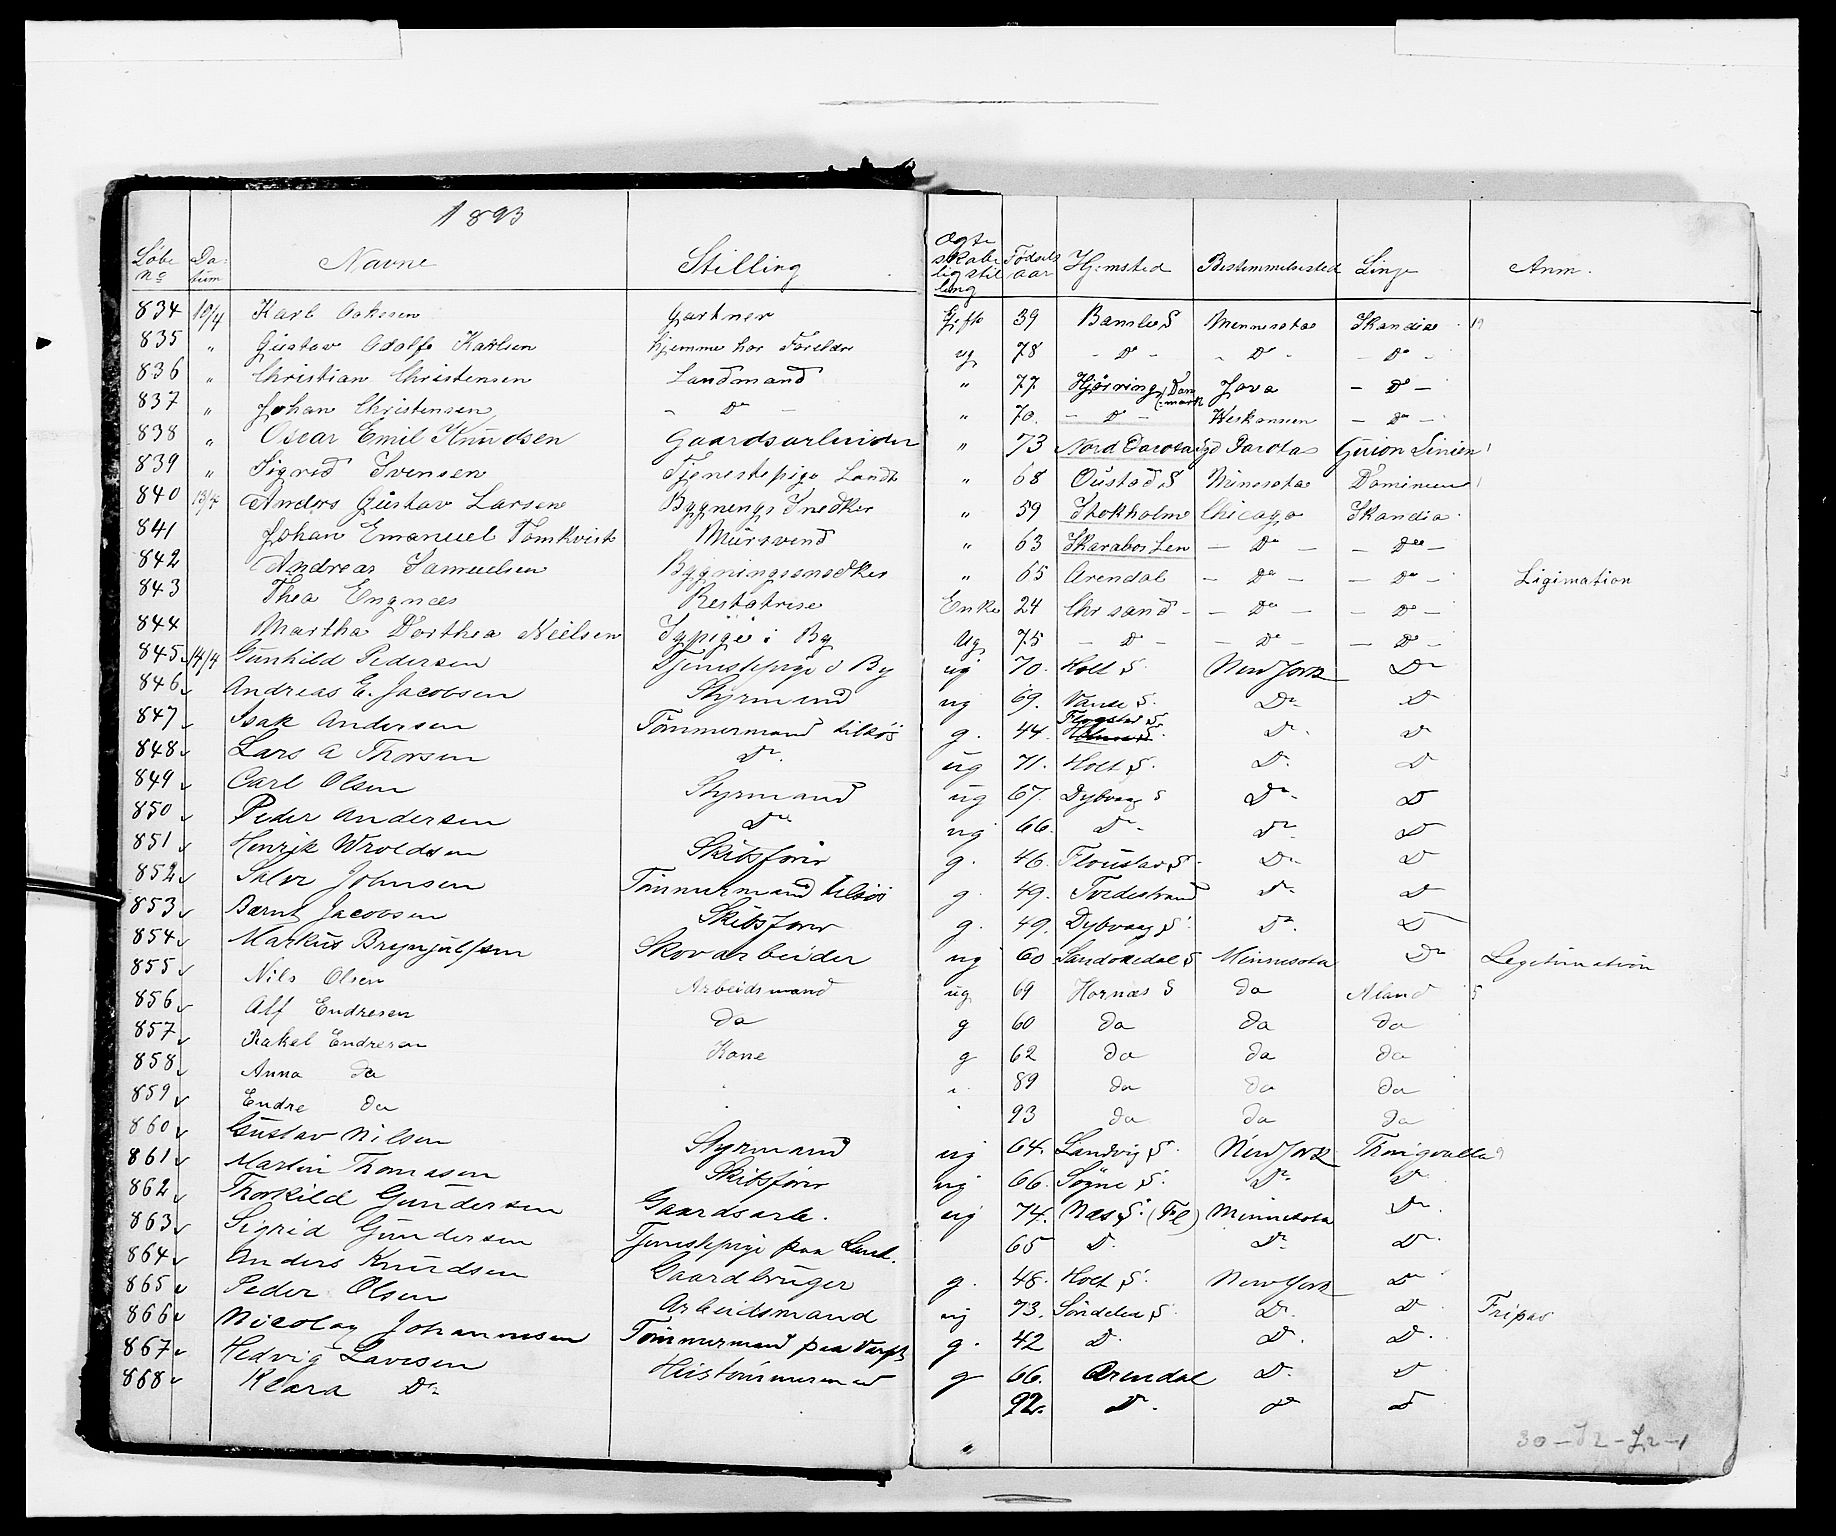 1893
Løbe No Datum Navne Stilling Ægteskabeligstilling Fødselsaar Hjemsted Bestemmelsested Linje Anm.
834 10/4 Karl Gartner Gift 39 Bamble S Mennesota Skandia
835 " Gustav Adolf Karlsen hjemme hos Foreldre ug 78 - Do - - Do - - Do -
836 " Christian Christensen Landmand " 77 Hjørring (Danmark Jova - Do -
837 " Johan Christensen - Do - " 70. - Do - Weskonsen - Do -
838 " Oscar Emil Knudsen Gaardsarbeider " 73 Nord Dacota Syd Dacota Guion Linien
839 " Sigrid Svensen Tjenestepige Landt " 68 Minesota
840 13/4 Anders Gustav Larsen Bygnings Snedker " 59 Stokholm Chicago Skandia
841 Johan Emanuel Tornkvist Mursvend " 63 Skarabos Len - Do - - Do -
842 Andreas Samuelsen Bygningssnedker " 65 Arendal - Do - - Do - Ligimation
843 Thea Engnæs Restatrise Enke 24 Chr sand - - Do - - Do -
844 Martha Dorthea Nielsen Sypige i By Ug 75 - Do - - Do - - Do -
845 14/4 Gunhild Pedersen Tjenestepige i By ug 70. Holt S. New York Do
846 Andreas E. Jacobsen Styrmand ug 69. S. Do D
847 Isak Andersen Tømmermand tilsøs g. 44. Flosstad S. Do D
848 Lars A Thorsen Do ug 71. Holt S. D. D
849 Carl Olsen Styrmand ug 67. Dybvaag S Do D
850 Peder Andersen Do ug 66. Do Do D
851 Henrik Wroldsen Skibsfører g. 46. Flostad S. Do D
852 Salve Johnsen Tømmermand tilsøs g. 49. Tvedestrand Do D
853 Bernt Jacobsen Skibsfører g. 49. Dybvaag S. Do. D
854 Markus Brynjulfsen Skovarbeider ug 60 Sandøkedal S Minnesota Do Legitimation
855 Nils Olsen Arbeidsmand ug 69 Hornæs S do Aland
856 Alf Endresen do g 60 do do do
857 Rakel Endresen Kone g 62 do do do
858 Anna do 89 do do do
859 Endre do 93 do do do
860 Gustav Nilsen Styrmand ug 64. Landvig S. New York Thingvalla
861 Martin Thomasen Skibsfører ug 66. Søgne S. Do D.
862 Thorkild Gundersen Gaardsarb. ug 74. Næs S. (Fl) Minnesota Do
863 Sigrid Gundersen Tjenestepige paa Land. 65 D. Do D.
864 Anders Knudsen Gaardbruger g. 48. Holt S. New York Do
865 Peder Olsen Arbeidsmand ug 73. Søndeled S. D. D Fripas
866 Nicolay Johannesen Tømmermand paa Værft g. 42 D. D. D.
867 Hedvig Lavesen Hustømmermand g 66. Arendal D. D
868 Klara Do 92. D. Do D
30-12-72-1